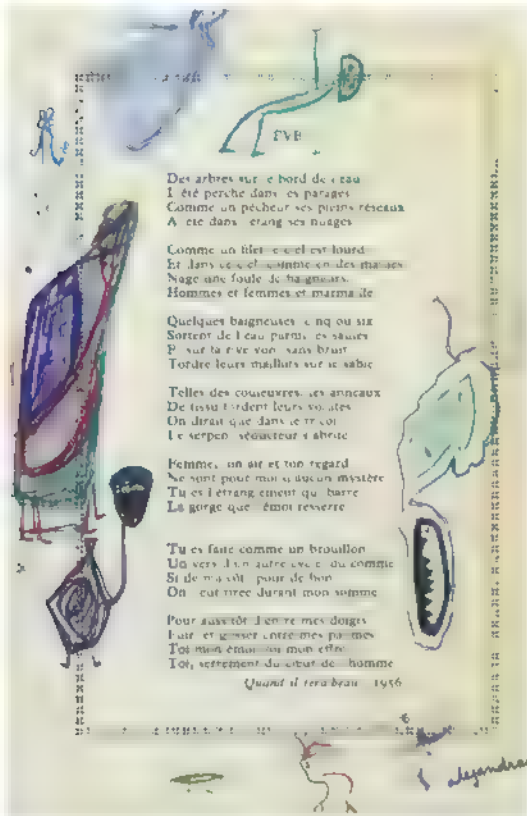 EVE
Des arbres sur le bord de l'eau
L'été perche dans les parages
Comme un pêcheur ses pleins réseaux
A jeté dans l'étang ses nuages
Comme un filet le ciel est lourd
Et dans ce ciel comme en des
Nage une foule de baigneurs
Hommes et femmes et marmaille
Quelques baigneuses cinq ou six
Sortent de l'eau parmi les saules
Et sur la rive vont sans bruit
Tordre leurs maillots sur le sable
Telles des couleuvres, les anneaux
De tissu tordent leurs volutes
On dirait que dans le tricot
Le serpent séducteur s'abrite
Femme, ton air et ton regard
Ne sont pour moi d'aucun mystère
Tu es l'étranglement qui barre
La gorge que l'émoi resserre
Tu es faite comme un brouillon
Un vers d'un autre du comme
Si de ma côte pour de bon
On t'eut tirée durant mon somme
Pour aussitôt d'entre mes doigts
Fuir et glisser entre mes paumes
Toi mon émoi, toi mon effroi
Toi, serrement du cœur de l'homme
Quand il fera beau 1956
alejandra